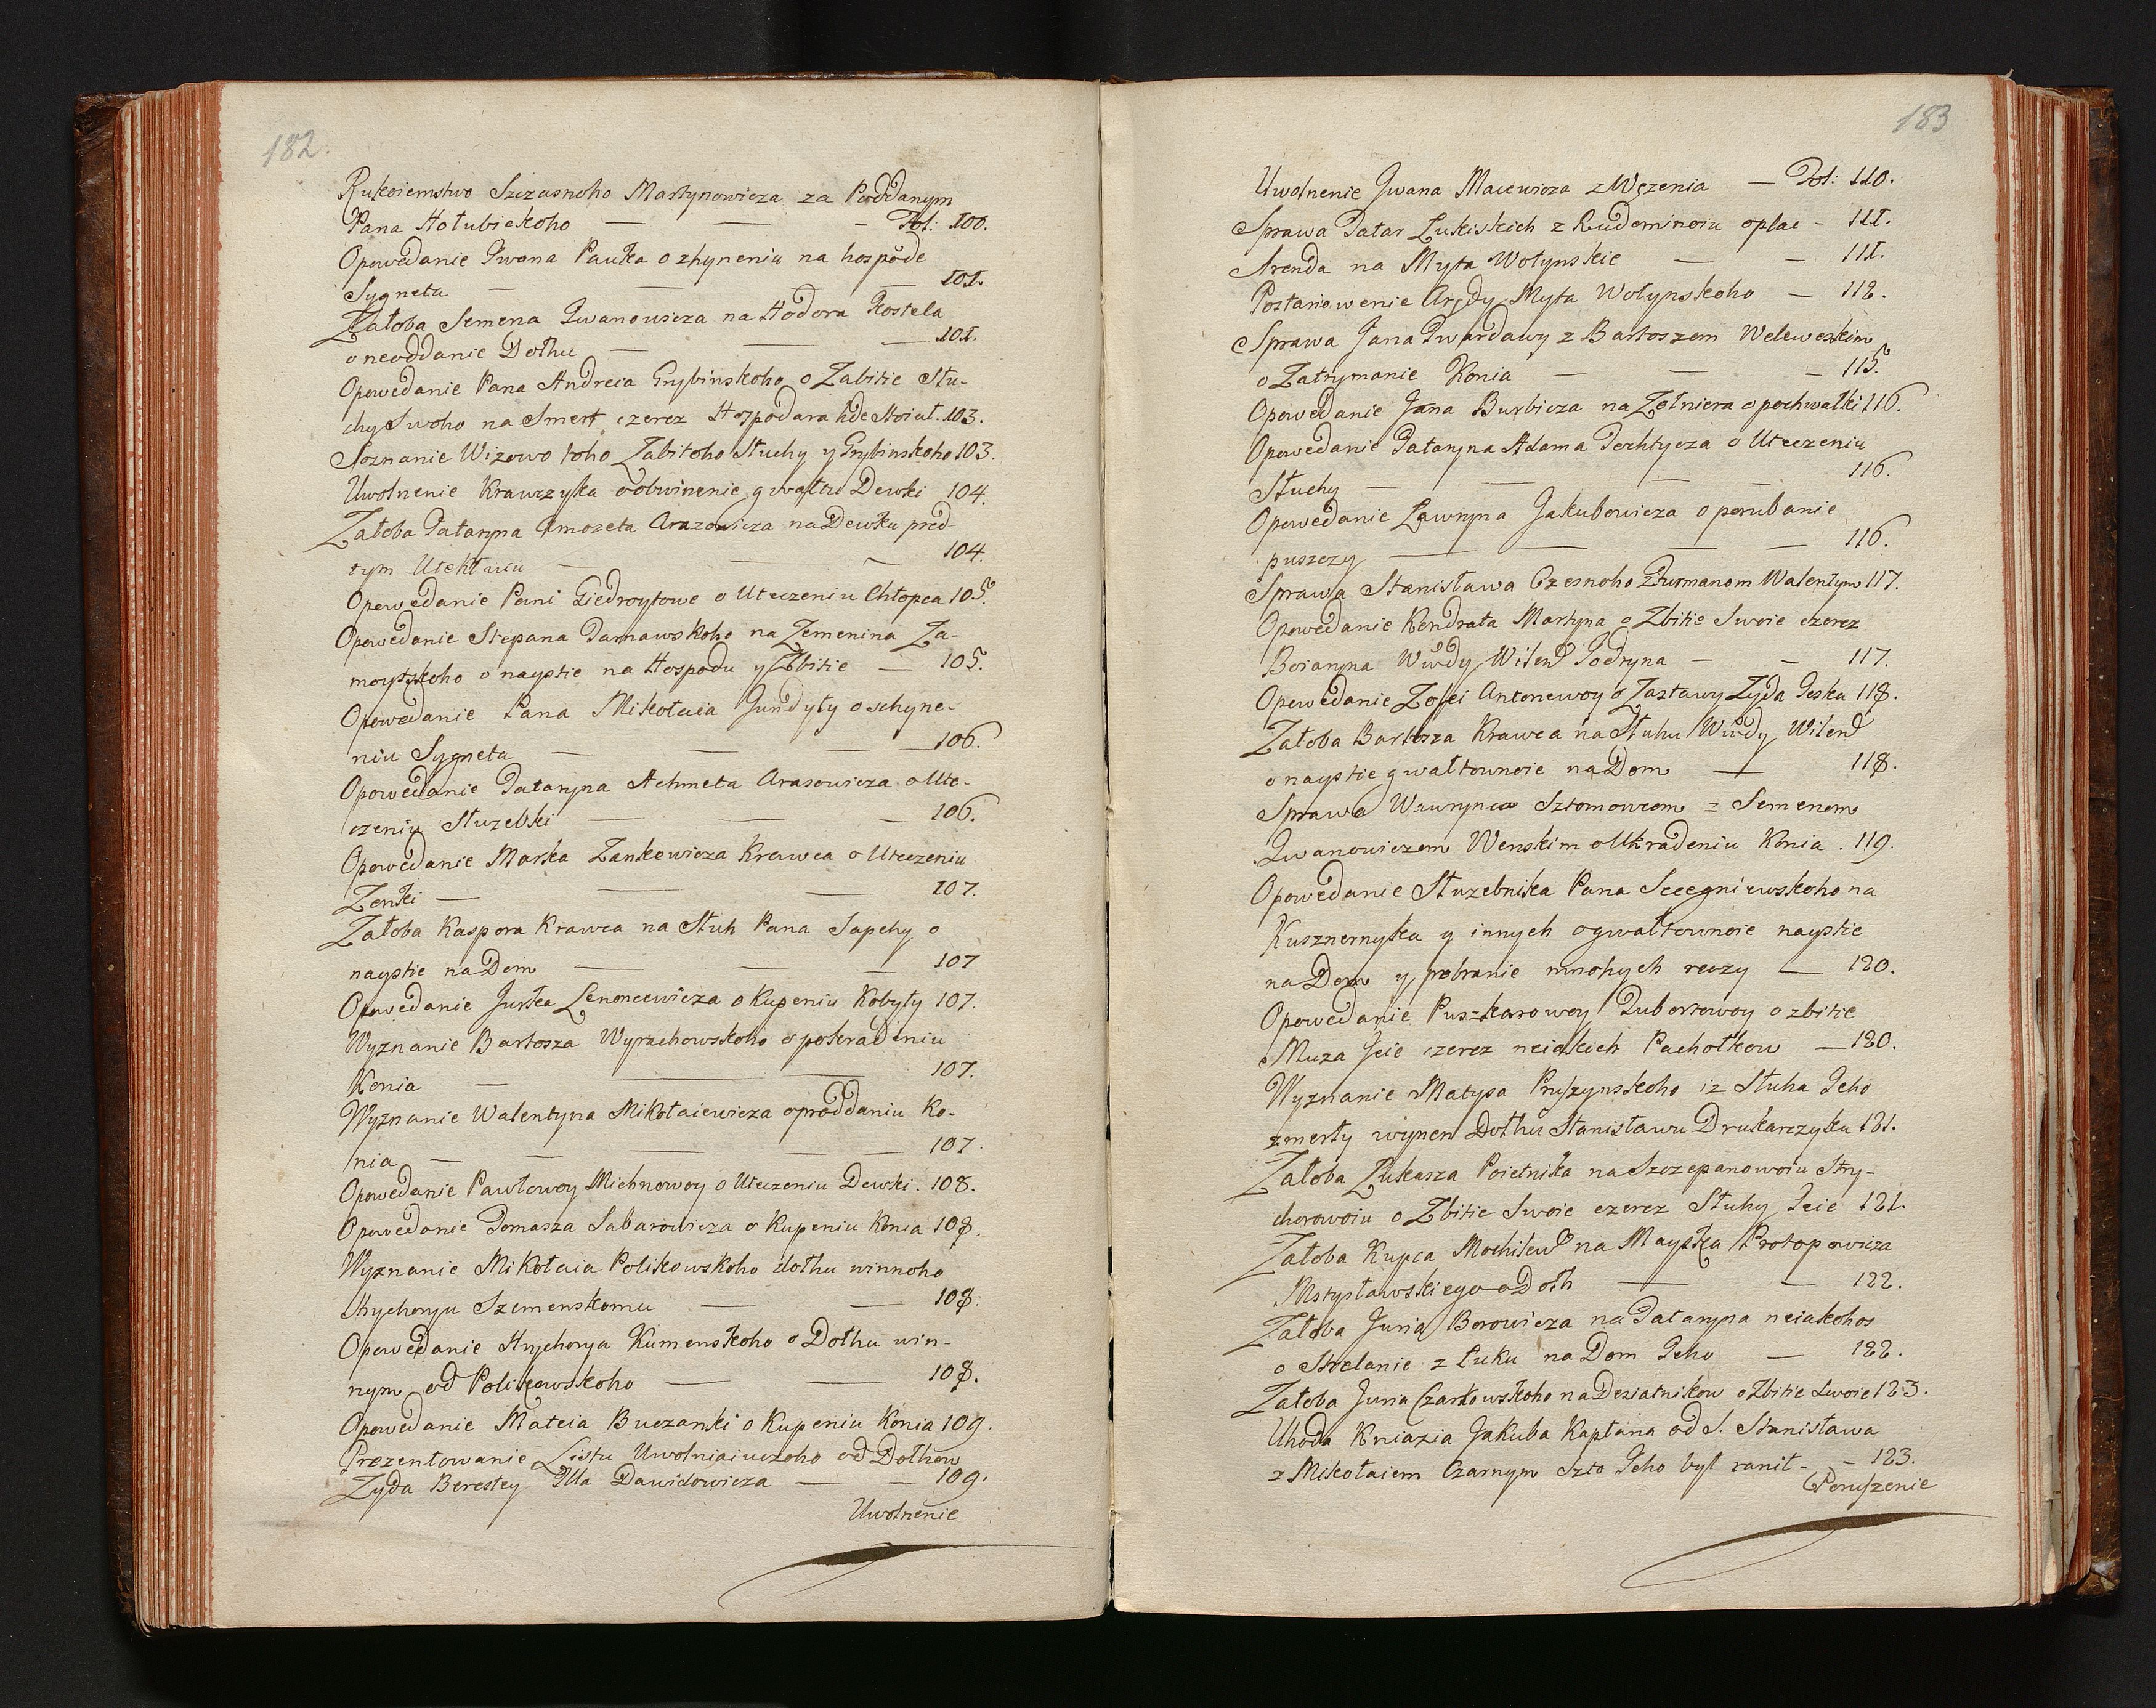 182.
Rukoiemstwo Szczasnoho Martynowicza za Poddanym
Pana Hołubickoho — — — Fol: 100.
Opowedanie Iwana Pawła o zhyneniu na hospode
Sygneta — — — 101.
Załoba Semena Iwanowicza na Hodora Kostela
o neoddanie Dołhu — — — 101.
Opowedanie Pana Andreia Grybinskoho o Zabitie Słu-
chy Swoho na Smert czerez Hospodara hde Stoiał. 103.
Soznanie Wizowo toho Zabitoho Słuchy y Grybinskoho 103.
Uwolnenie Krawczyka o obwinenie gwałtu Dewki 104.
Załoba Tataryna Amozeta Arazowicza na Dewku pred
tym Utekłuiu — — — 104.
Opowedanie Pani Giedroytowe o Uteczeniu Chłopca 105.
Opowedanie Stepana Tarnawskoho na Zemenina Za-
moyskoho o nayście na Hospodu y Zbitie — 105.
Opowedanie Pana Mikołaia Gundyły o schyne-
niu Sygneta — — — — 106.
Opowedanie Tataryna Achmeta Arasowicza o Ute-
czeniu Służebki — — — 106.
Opowedanie Marka Zankowicza Krawca o Uteczeniu
Zonki — — — 107.
Załoba Kaspora Krawca na Słuh Pana Sapehy o
nayście na Dom — — — 107
Opowedanie Jurka Lenoncewicza o Kupeniu Kobyły 107.
Wyznanie Bartosza Wyrzchowskoho o pokradeniu
Konia — — — 107.
Wyznanie Walentyna Mikołaiewicza o proddaniu Ko-
nia — — — — 107.
Opowedanie Pawłowoy Michnowoy o Uteczeniu Dewki. 108.
Opowedanie Tomasza Sabarowicza o Kupeniu Konia 108.
Wyznanie Mikołaia Polikowskoho dołhu winnoho
Hrychoryu Szemenskomu — — 108.
Opowedanie Hrychorya Kumenskoho o Dołhu win-
nym od Polikowskoho — — 108.
Opowedanie Mateia Buczanki o Kupeniu Konia 109.
Prezentowanie Listu Uwolniaiuczoho od Dołhow
Żyda Berestey Illa Dawidowicza — — 109.
Uwolnenie
183
Uwolnenie Jwana Macewicza z Węzenia — Fol: 110.
Sprawa Tatar Łukiskich z Rudominoiu opłac - 111.
Arenda na Myta Wołynskie — — 111.
Postanowenie Arędy Myta Wołynskoho — 112.
Sprawa Jana Twardawy z Bartoszem Weleweskim
o Zatrymanie Konia — — — 115.
Opowedanie Jana Burbicza na Żołniera o pochwałki 116.
Opowedanie Tataryna Adama Techtycza o Uteczeniu
Słuchy — — — — 116.
Opowedanie Ławryna Jakubowicza o porubanie
puszczy — — — — 116.
Sprawa Stanisława Czesnoho z Furmanom Walentym 117.
Opowedanie Kondrata Martyna o Zbitie Swoie czerez
Boiaryna Wwdy Wilen Todryna — — 117.
Opowedanie Zofei Antonewoy o Zastawy Żyda Ieska 118.
Załoba Bartosza Krawca na Słuhu Wwdy Wilen
o nayście gwałtownoie na Dom — 118.
Sprawa Wawrynca Szłomowcom z Semenom
Iwanowiczem Wenskim o Ukradeniu Konia . 119.
Opowedanie Służebnika Pana Sceegniewskoho na
Kusznernyka y innych o gwałtownoie nayście
na Dom y pobranie mnohych reczy — 120.
Opowedanie Puszkarowoy Lubortowoy o zbitie
Muza Ieie czerez neiakich Pachołkow — 120.
Wyznanie Matysa Pruszynskoho iz Słuha Ieho
zmerły wynen Dołhu Stanisławu Drukarczyku 121.
Załoba Łukasza Poietnika na Szczepanowoiu Hry-
chorowoiu o Zbitie Swoie czerez Słuhy Ieie 121.
Załoba Kupca Mochilew na Mayska Protopowicza
Mstysławskiego o Dołh — — 122.
Załoba Juria Borowicza na Tataryna neiakohos
o Strelanie z Łuku na Dom Ieho — 122.
Załoba Juria Czarkowskoho na Desiatnikow o Zbitie Swoie 123.
Uhoda Kniazia Jakuba Kapłana od S. Stanisława
z Mikołaiem Czarnym szto Ieho był ranił - - 123.
Poruszenie